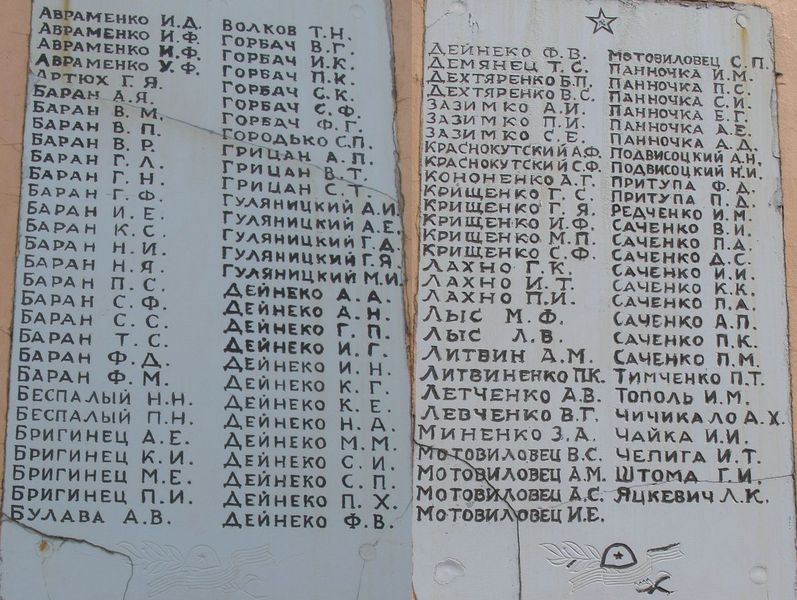 АВРАМЕНКО И.Д.
АВРАМЕНКО И.Ф.
АВРАМЕНКО И.Ф.
АВРАМЕНКО У.Ф.
АРТЮХ Г.Я.
БАРАН А.Я.
БАРАН В.М.
БАРАН В.П.
БАРАН В.Р.
БАРАН Г.Л.
БАРАН Г.Н.
БАРАН Г.Ф.
БАРАН И.Е.
БАРАН К.С.
БАРАН Н.И.
БАРАН Н.Я.
БАРАН П.С.
БАРАН С.Ф.
БАРАН С.С.
БАРАН Т.С.
БАРАН Ф.Д.
БАРАН Ф.М.
БЕСПАЛЫЙ Н.Н.
БЕСПАЛЫЙ П.Н.
БРИГИНЕЦ А.Е.
БРИГИНЕЦ К.И.
БРИГИНЕЦ М.Е.
БРИГИНЕЦ П.И.
БУЛАВА А.В.
ВОЛКОВ Т.Н.
ГОРБАЧ В.Г.
ГОРБАЧ И.К.
ГОРБАЧ П.К.
ГОРБАЧ С.К.
ГОРБАЧ С.Ф.
ГОРБАЧ Ф.Г.
ГОРОДЬКО С.П.
ГРИЦАН А.П.
ГРИЦАН В.Т.
ГРИЦАН С.Т.
ГУЛЯНИЦКИЙ А.И.
ГУЛЯНИЦКИЙ А.Е.
ГУЛЯНИЦКИЙ Г.Д.
ГУЛЯНИЦКИЙ Г.Я.
ГУЛЯНИЦКИЙ М.И.
ДЕЙНЕКО А.А.
ДЕЙНЕКО А.Н.
ДЕЙНЕКО Г.П.
ДЕЙНЕКО И.Г.
ДЕЙНЕКО И.Н.
ДЕЙНЕКО К.Г.
ДЕЙНЕКО К.Е.
ДЕЙНЕКО Н.А.
ДЕЙНЕКО М.М.
ДЕЙНЕКО С.И.
ДЕЙНЕКО С.П.
ДЕЙНЕКО П.Х.
ДЕЙНЕКО Ф.В.
ДЕЙНЕКО Ф.В.
ДЕМЯНЕЦ Т.С.
ДЕХТЯРЕНКО Б.П.
ДЕХТЯРЕНКО В.С.
ЗАЗИМКО А.И.
ЗАЗИМКО П.И.
ЗАЗИМКО С.Е.
КРАСНОКУТСКИЙ А.Ф.
КРАСНОКУТСКИЙ С.Ф.
КОНОНЕНКО А.Г.
КРИЩЕНКО Г.С.
КРИЩЕНКО Г.Я.
КРИЩЕНКО И.Ф.
КРИЩЕНКО М.П.
КРИЩЕНКО С.Ф.
ЛАХНО Г.К.
ЛАХНО И.Т.
ЛАХНО П.И.
ЛЫС М.Ф.
ЛЫС Л.В.
ЛИТВИН А.М.
ЛИТВИНЕНКО П.К.
ЛЕТЧЕНКО А.В.
ЛЕВЧЕНКО В.Г.
МИНЕНКО З.А.
МОТОВИЛОВЕЦ В.С.
МОТОВИЛОВЕЦ А.М.
МОТОВИЛОВЕЦ А.С.
МОТОВИЛОВЕЦ И.Е.
МОТОВИЛОВЕЦ С.П.
ПАННОЧКА И.М.
ПАННОЧКА П.С.
ПАННОЧКА С.И.
ПАННОЧКА Е.Г.
ПАННОЧКА А.Е.
ПАННОЧКА А.Д.
ПОДВИСОЦКИЙ А.Н.
ПОДВИСОЦКИЙ Н.И.
ПРИТУПА Ф.Д.
ПРИТУПА П.Д.
РЕДЧЕНКО И.М.
САЧЕНКО В.И.
САЧЕНКО П.А.
САЧЕНКО Д.С.
САЧЕНКО И.И.
САЧЕНКО К.К.
САЧЕНКО П.А.
САЧЕНКО А.П.
САЧЕНКО П.К.
САЧЕНКО П.М.
ТИМЧЕНКО П.Т.
ТОПОЛЬ И.М.
ЧИЧИКАЛО А.Х.
ЧАЙКА И.И.
ЧЕПИГА И.Т.
ШТОМА Г.И.
ЯЦКЕВИЧ Л.К.